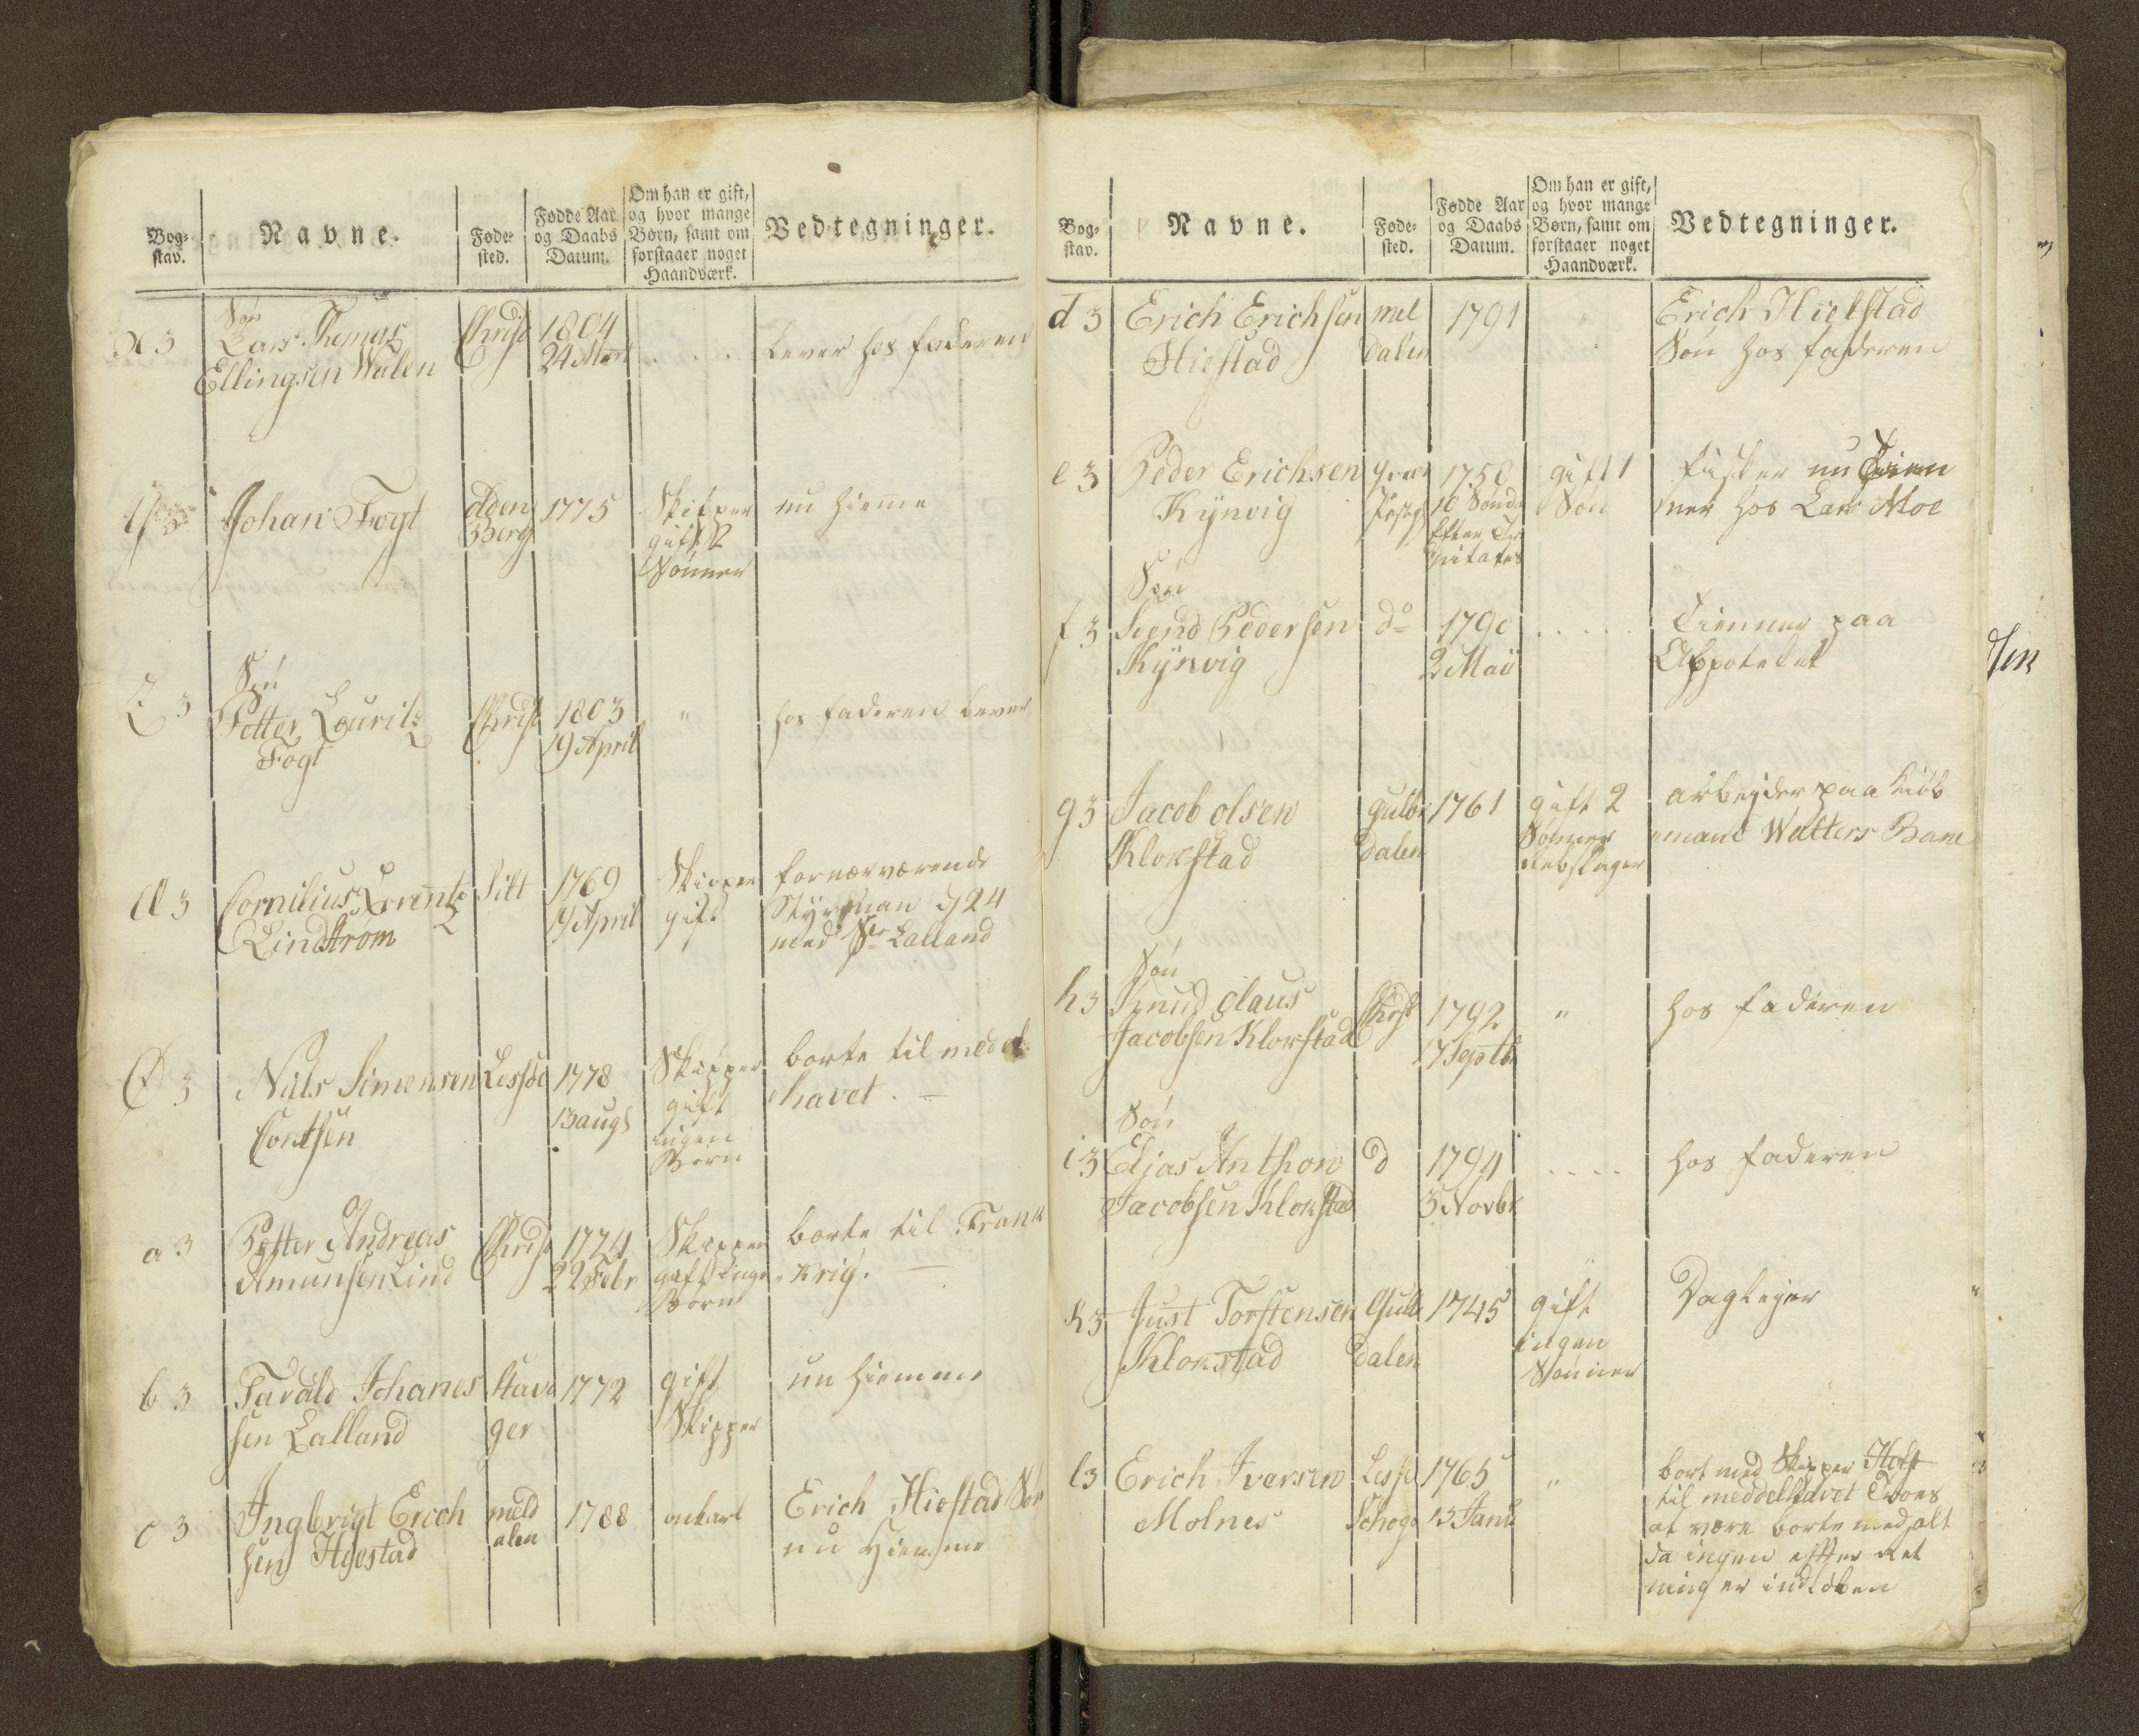 Bog-
stav.
Navne.
Føde-
sted.
Fødde Aar
og Daabs
Datum.
Om han er gift,
og hvor mange
Børn, samt om
forstaaer noget
Haandværk.
Vedtegninger.
X 3
Søn
Lars Thomas
Ellingsen Walen
Christ
1804
24 Mart
. . . .
Lever hos faderen
Johan Fogt
olden
Berg
1775
Skipper
gift 2
Sønner
nu hieme
Z 3
Søn
Petter Lourits
Fogt
Christ
1803
19 April
"
hos faderen Lever
Æ 3
Cornilius Lorentz
Lindstrom
Silt
1769
19 April
Skipper
gift
fornærværende
Styrman 924
med Sr Lalland
Ø 3
Niels Simensen
Contsen
Lessøe
1778
13 augs
Skipper
gift
ingen
Børn
borte til meddel
havet. —
a 3
Petter Andreas
Amunsen Lind
Christ
1774
22 Febr
Skipper
gift inge
Børn
borte til Frank
krig. —
b 3
Tarald Johanes
sen Lalland
Stava
ger
1772
gift
Skipper
nu hiemme
c 3
Inglbrigt Erich
sen Hiestad
meld
alen
1788
unkarl
Erich Hiestad Søn
nu Hiemme
Bog-
stav.
Navne.
Føde-
sted.
Fødde Aar
og Daabs
Datum.
Om han er gift,
og hvor mange
Børn, samt om
forstaaer noget
Haandværk.
Vedtegninger.
d 3
Erich Erichsen
Hiestad
mel
dalen
1791
Erich Hielstad
Søn hos faderen
e 3
Peder Erichsen
Kynvig
1758
10 Sønd
Efter Tr
initates
gift 1
Søn
fisker nu Tien
ner hos Lars Moe
f 3
Søn
Svend Pedersen
Kynvig
do
1790
2 Maii
. . . . .
Tienner paa
Appoteket
g 3
Jacob olsen
Klokstad
Gulbr
dalen
1761
gift 2
Sønner
Rebslager
arbeyder paa Kiøb
mand Welters Bane
h 3
Søn
Knud olaus
Jacobsen Klokstad
Christ
1792
17 Septbr
"
hos faderen
i 3
Søn
Eljas Anthon
Jacobsen Klokstad
d
1794
3 Novbr
. . . .
hos faderen
k 3
Just Torstensen
Klokstad
Gulb
dalen
1745
gift
ingen
Sønner
Dagleyer
l 3
Erich Iversen
Molnes
Lesse
Schoge
1765
13 Janu
"
bort med Skipper Holst
til meddelhavet Troes
at være borte med alt
da ingen effter ret
ning er indløben